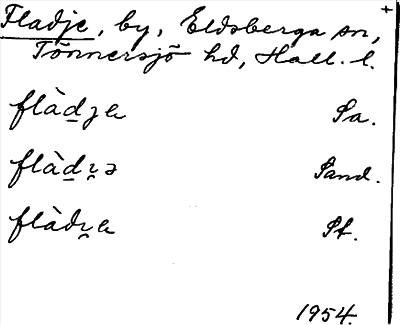 Fladje, by, Eldsberga sn, +
Tönnersjö hd, Hall. l.
flàd̲ʒa Sa.
flàd̲ɪ̯ə Sand.
flàdɪ̯a St.
1954.